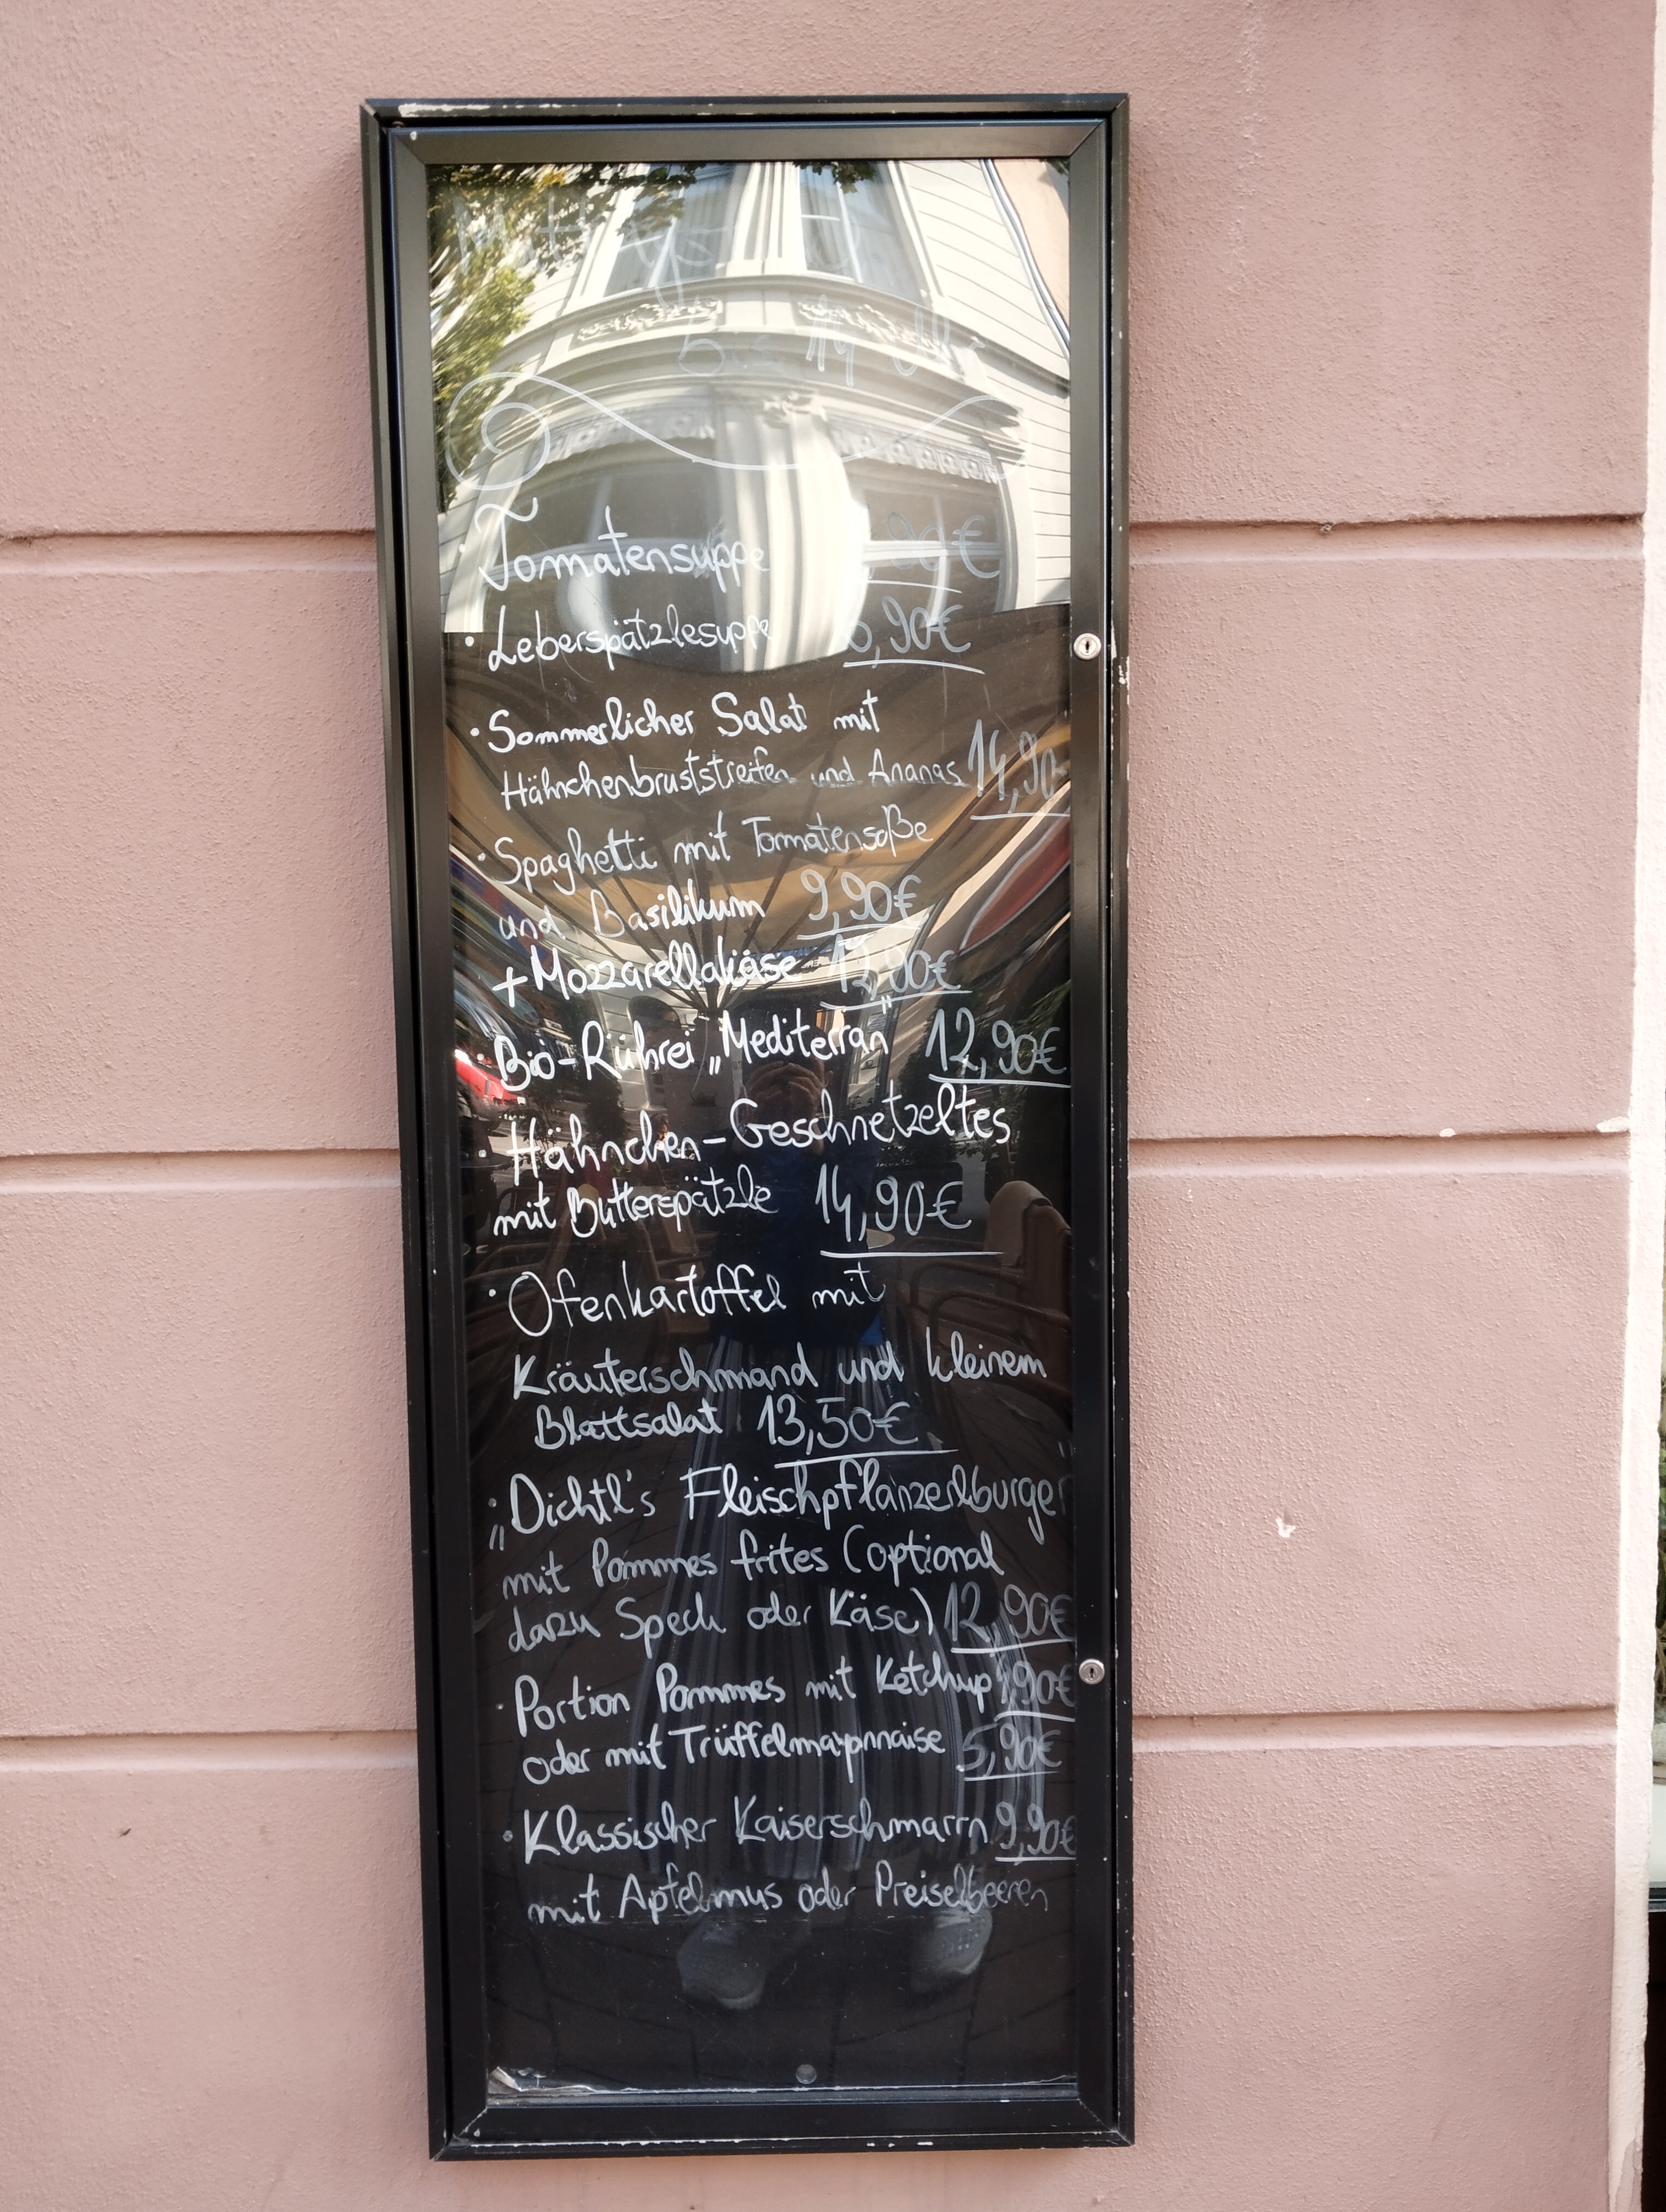 bis 14 U
· Tomatensuppe ,90€
· Leberspätzlesuppe 6,90€
· Sommerlicher Salat mit
Hähnchenbruststreifen und Ananas 14,90
· Spaghetti mit Tomatensoße
und Basilikum 9,90€
+ Mozzarellakäse 12,90€
· Bio-Rührei „Mediterran" 12,90€
· Hähnchen-Geschnetzeltes
mit Butterspätzle 14,90€
· Ofenkartoffel mit
Kräuterschmand und kleinem
Blattsalat 13,50€
„Dichtl's Fleischpflanzerlburger"
mit Pommes frites (optional
dazu Speck oder Käse) 12,90€
· Portion Pommes mit Ketchup ,90€
oder mit Trüffelmayonnaise 5,90€
· Klassischer Kaiserschmarrn 9,90€
mit Apfelmus oder Preiselbeeren